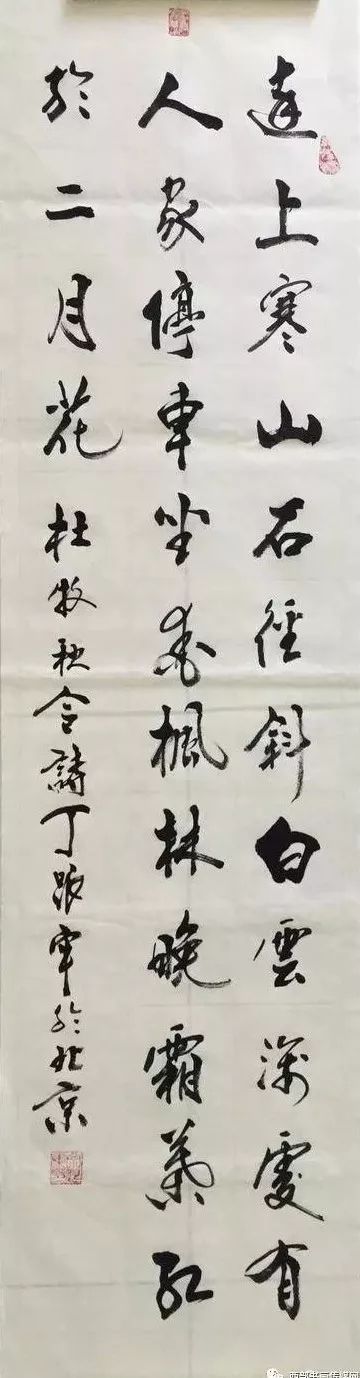 遠上寒山石徑斜白雲深處有
人家停車坐愛楓林晚霜葉紅
於二月花 杜牧秋詩丁軍於北京